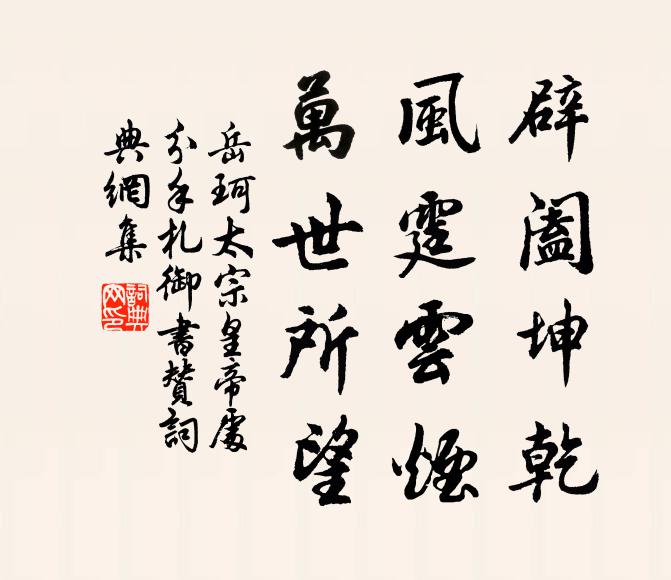 辟阖坤乾
風霆雲煙
萬世所望
岳珂太宗皇帝處
分手札御書赞詞
典網集
詞典網印